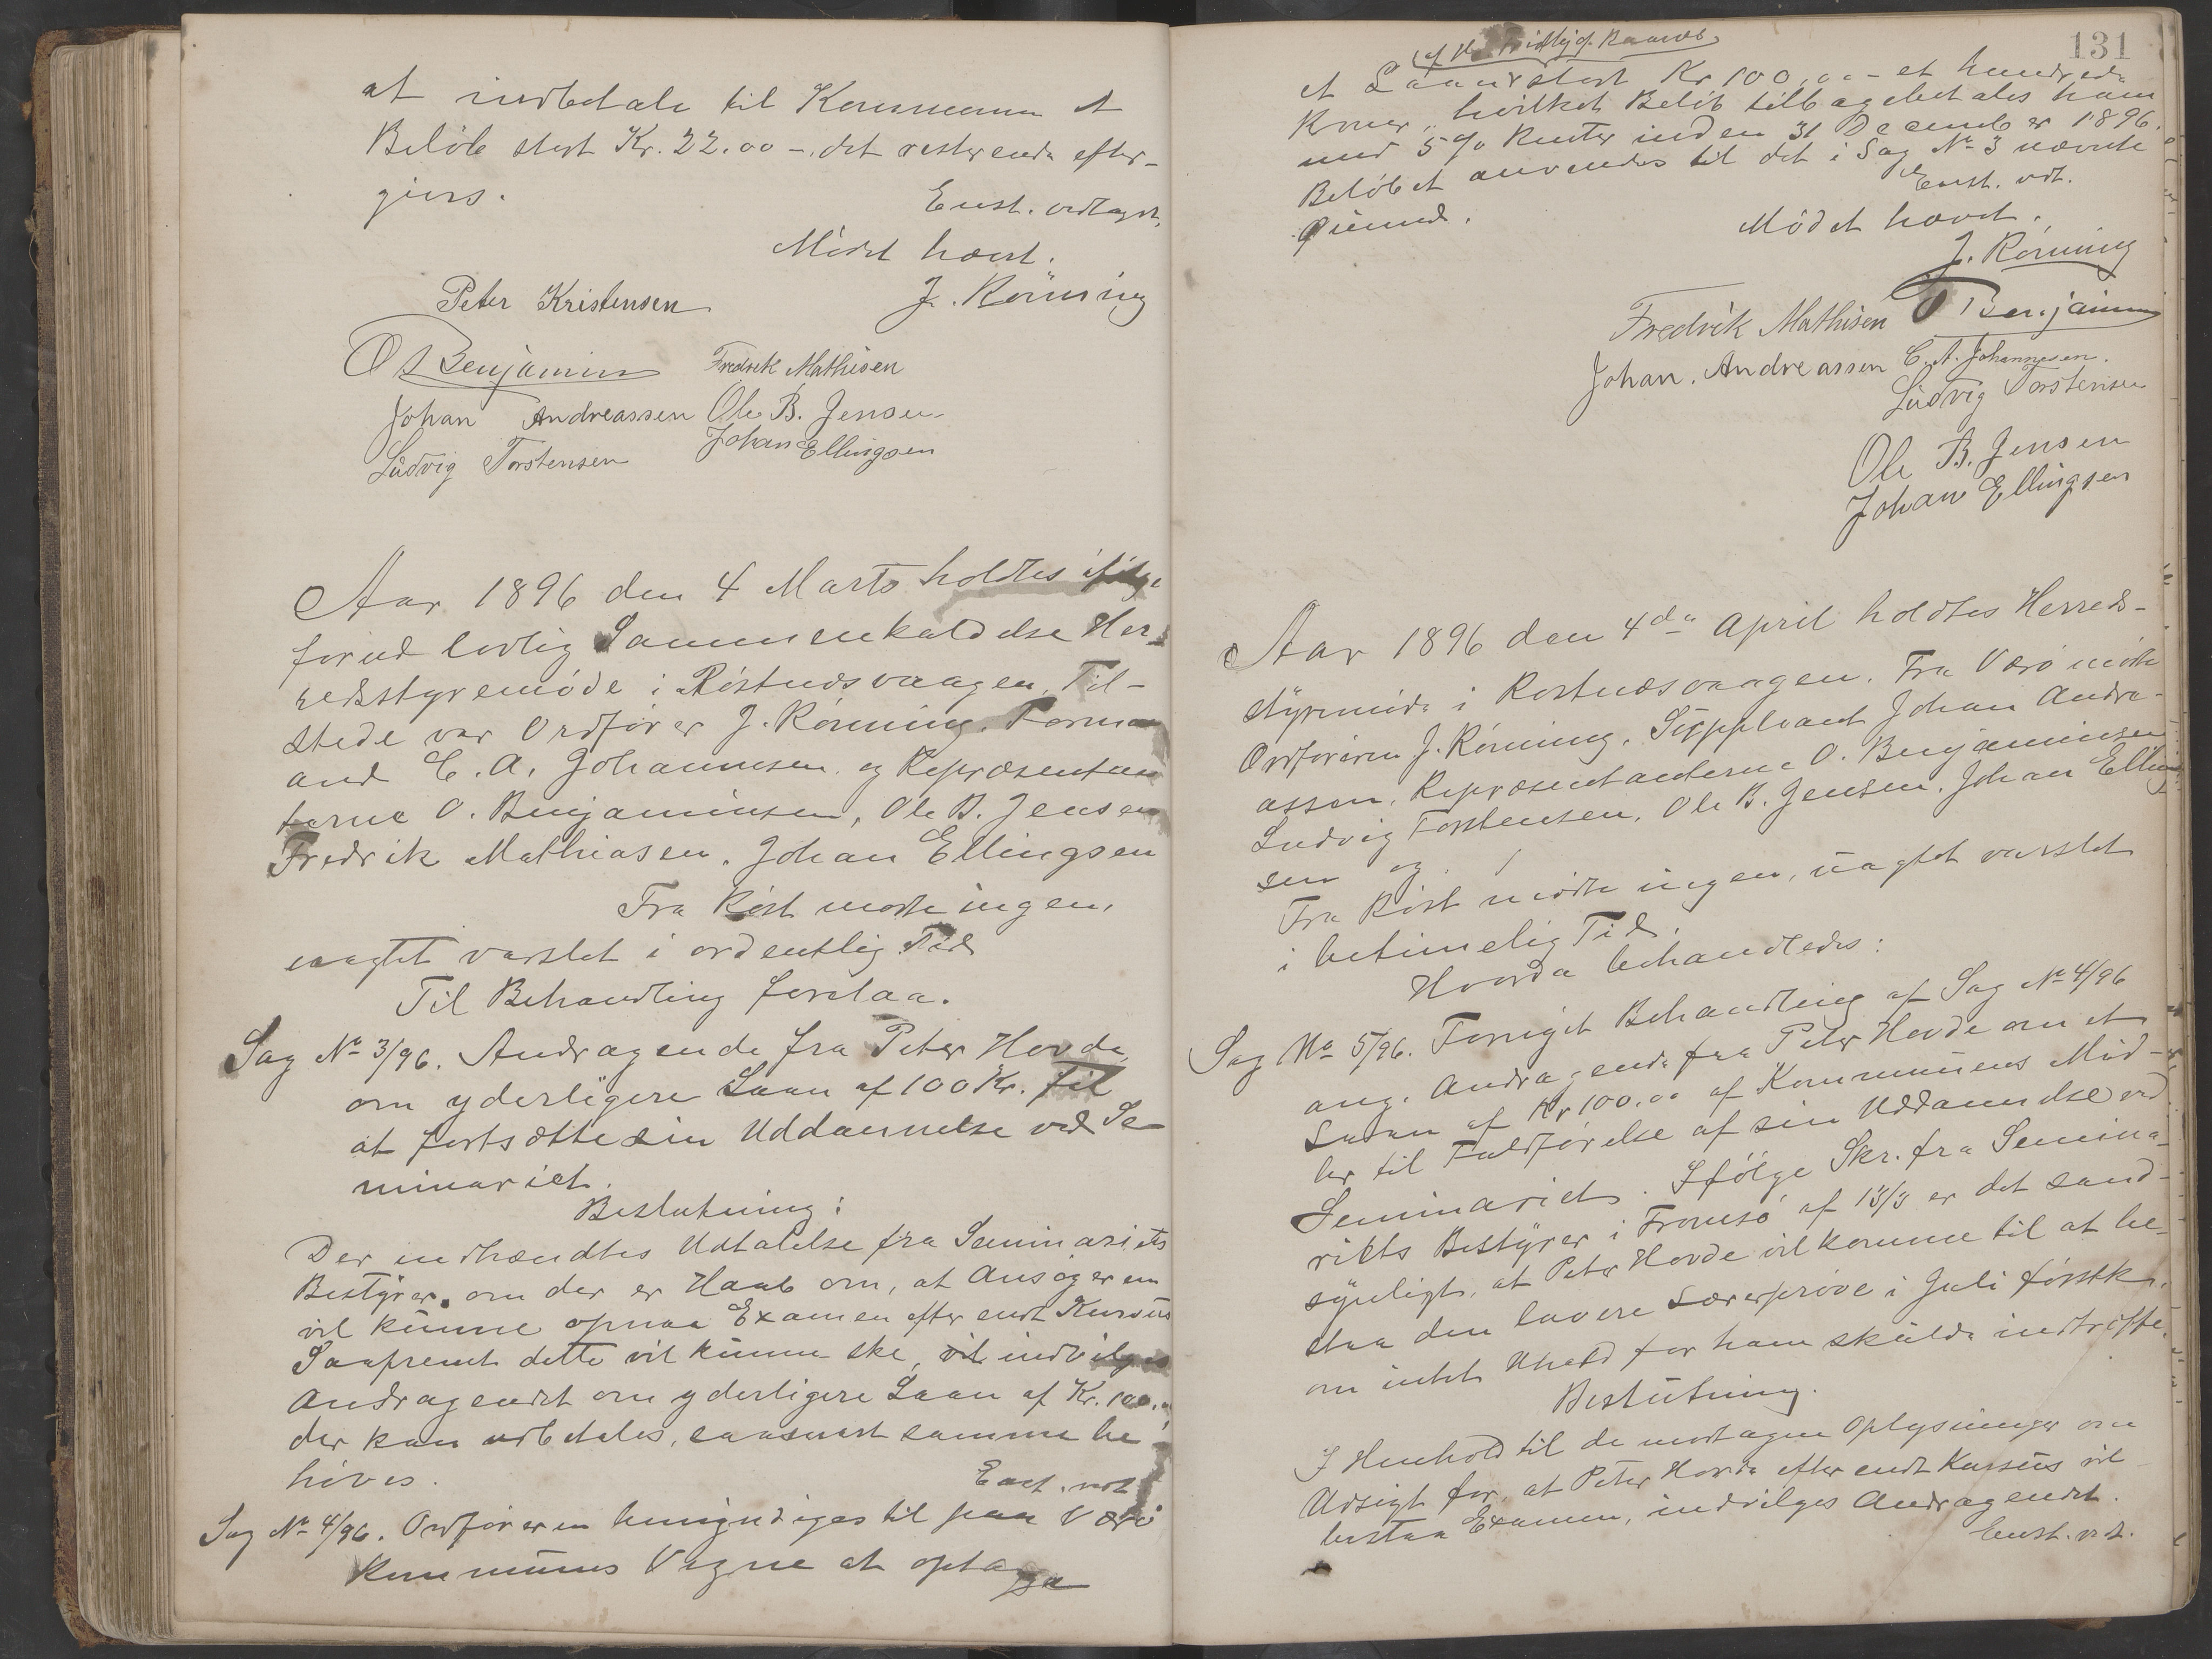 at indbetale til Kommunen et
Beløb stort Kr. 22.00 –, det resterende efter-
gives.
Enst. vedtaget.
Mødet hævet.
J. Rönning
Peter Kristensen
O Benjaminsen Fredrik Mathisen
Johan Andreassen Ole B. Jensen
Ludvig Torstensen Johan Ellingsen
Aar 1896 den 4 Marts holdtes ifølge
forud lovlig Sammenkaldelse Her-
redsstyremøde i Røstnesvaagen. Til-
stede var Ordfører J. Rönning. Form
and C. A. Johannesen og Repræsentan
terne O. Benjaminsen, Ole B. Jensen
Fredrik Mathiasen. Johan Ellingsen
Fra Røst mødte ingen,
uagtet varslet i ordentlig Tid
Til Behandling forelaa.
Sag No 3/96. Andragende fra Peter Hovde
om yderligere Laan af 100 Kr. til
at fortsætte sin Uddannelse ved Se
minariet.
Beslutning:
Der indhændtes Udtalelse fra Seminariets
Bestyrer, om der er Haab om, at Ansøgeren
vil kunne opnaa Examen efter endt Kursus
Saafremt dette vil kunne ske, vil indvilges
Andragendet om yderligere Laan af Kr. 100.00
der kan udbetales, saasnart samme be-
høves.
Enst. vedt
Sag No 4/96. Ordføreren bemyndiges til paa Værø
Kommunes Vegne at optage
131
et Laan stort Kr 100,00 – et hundrede
Kroner, hvilket Beløb tilbagebetales ham
med 5% Renter inden 31 December 1896.
Beløbet anvendes til det i Sag No 3 nævnte
Øiemed.
Enst. vdt.
Mødet hævet.
J. Rönning
Fredrik Mathisen O Benjaminsen
Johan. Andreassen C. A. Johannesen.
Ludvig Torstensen
Ole B. Jensen
Johan Ellingsen
Aar 1896 den 4de April holdtes Herreds-
styremøde i Rostnæsvaagen. Fra Værø mødte
Ordføreren J. Rönning. Suppleant Johan Andre-
assen, Repræsentanterne O. Benjaminsen
Ludvig Torstensen, Ole B. Jensen, Johan Elling
sen og
Fra Røst mødte ingen, uagtet varslet
i betimelig Tid.
Hvorda behandledes:
Sag No 5/96. Fornyet Behandling af Sag No 4/96
ang. Andragende fra Peter Hovde om et
Laan af Kr 100.00 af Kommunens Mid-
ler til Fuldførelse af sin Uddannelse ved
Seminariet. Ifølge Skr. fra Semina-
riets Bestyrer i Tromsø af 13/3 er det sand-
synligt, at Peter Hovde vil komme til at be-
staa den lavere Lærerprøve i Juli førstk.
om intet Uheld for ham skulde indtreffe.
Beslutning.
I Henhold til de modtagne Oplysninger om
Udsigt for, at Peter Hovde efter endt Kursus vil
bestaa Examen, indvilges Andragendet.
Enst. vdt.